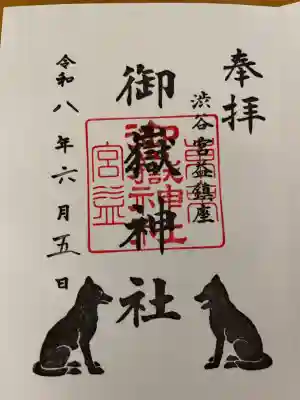 奉拝
渋谷宮益鎮座
御嶽神社
令和八年六月五日
御嶽神社
宮益